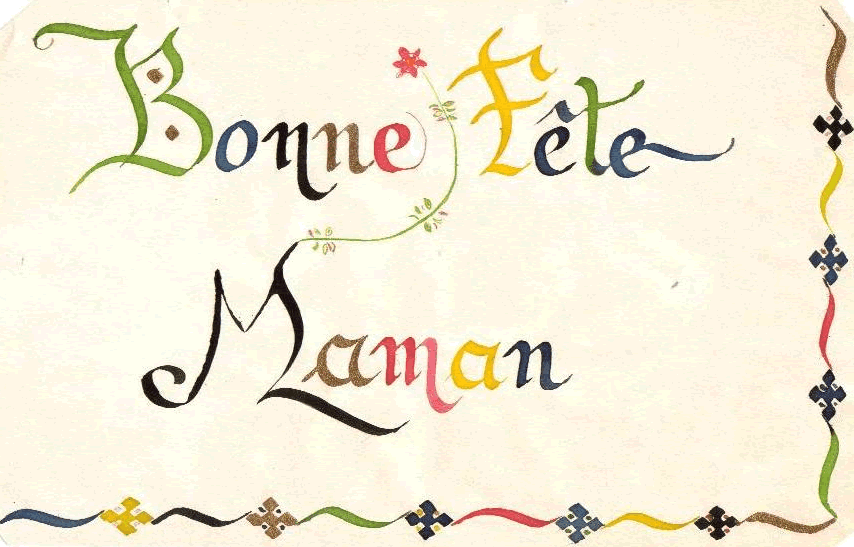 Bonne Fête
Maman